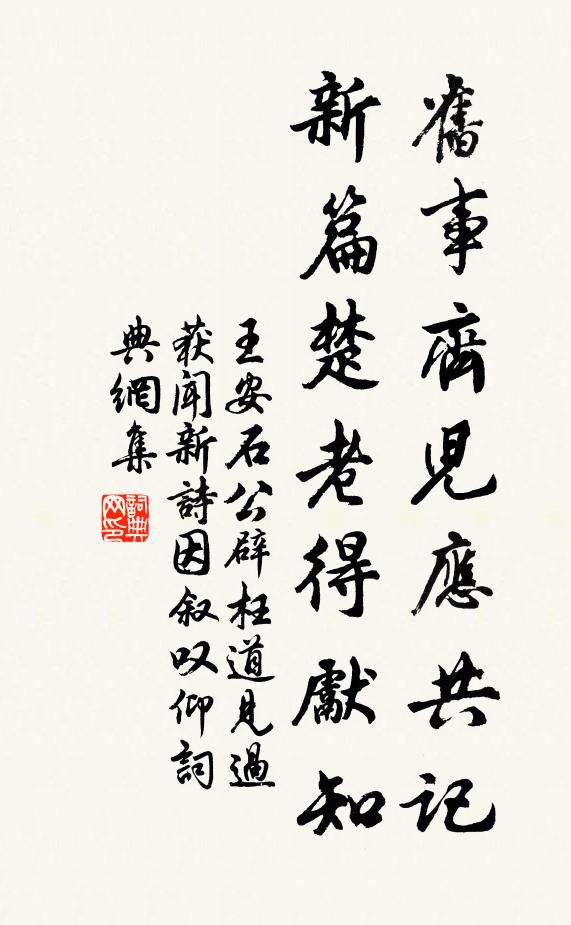 舊事齊兒應共記
新篇楚老得獻知
王安石公辟枉道見過
获聞新詩因叙叹仰詞
典網集
詞典
网印